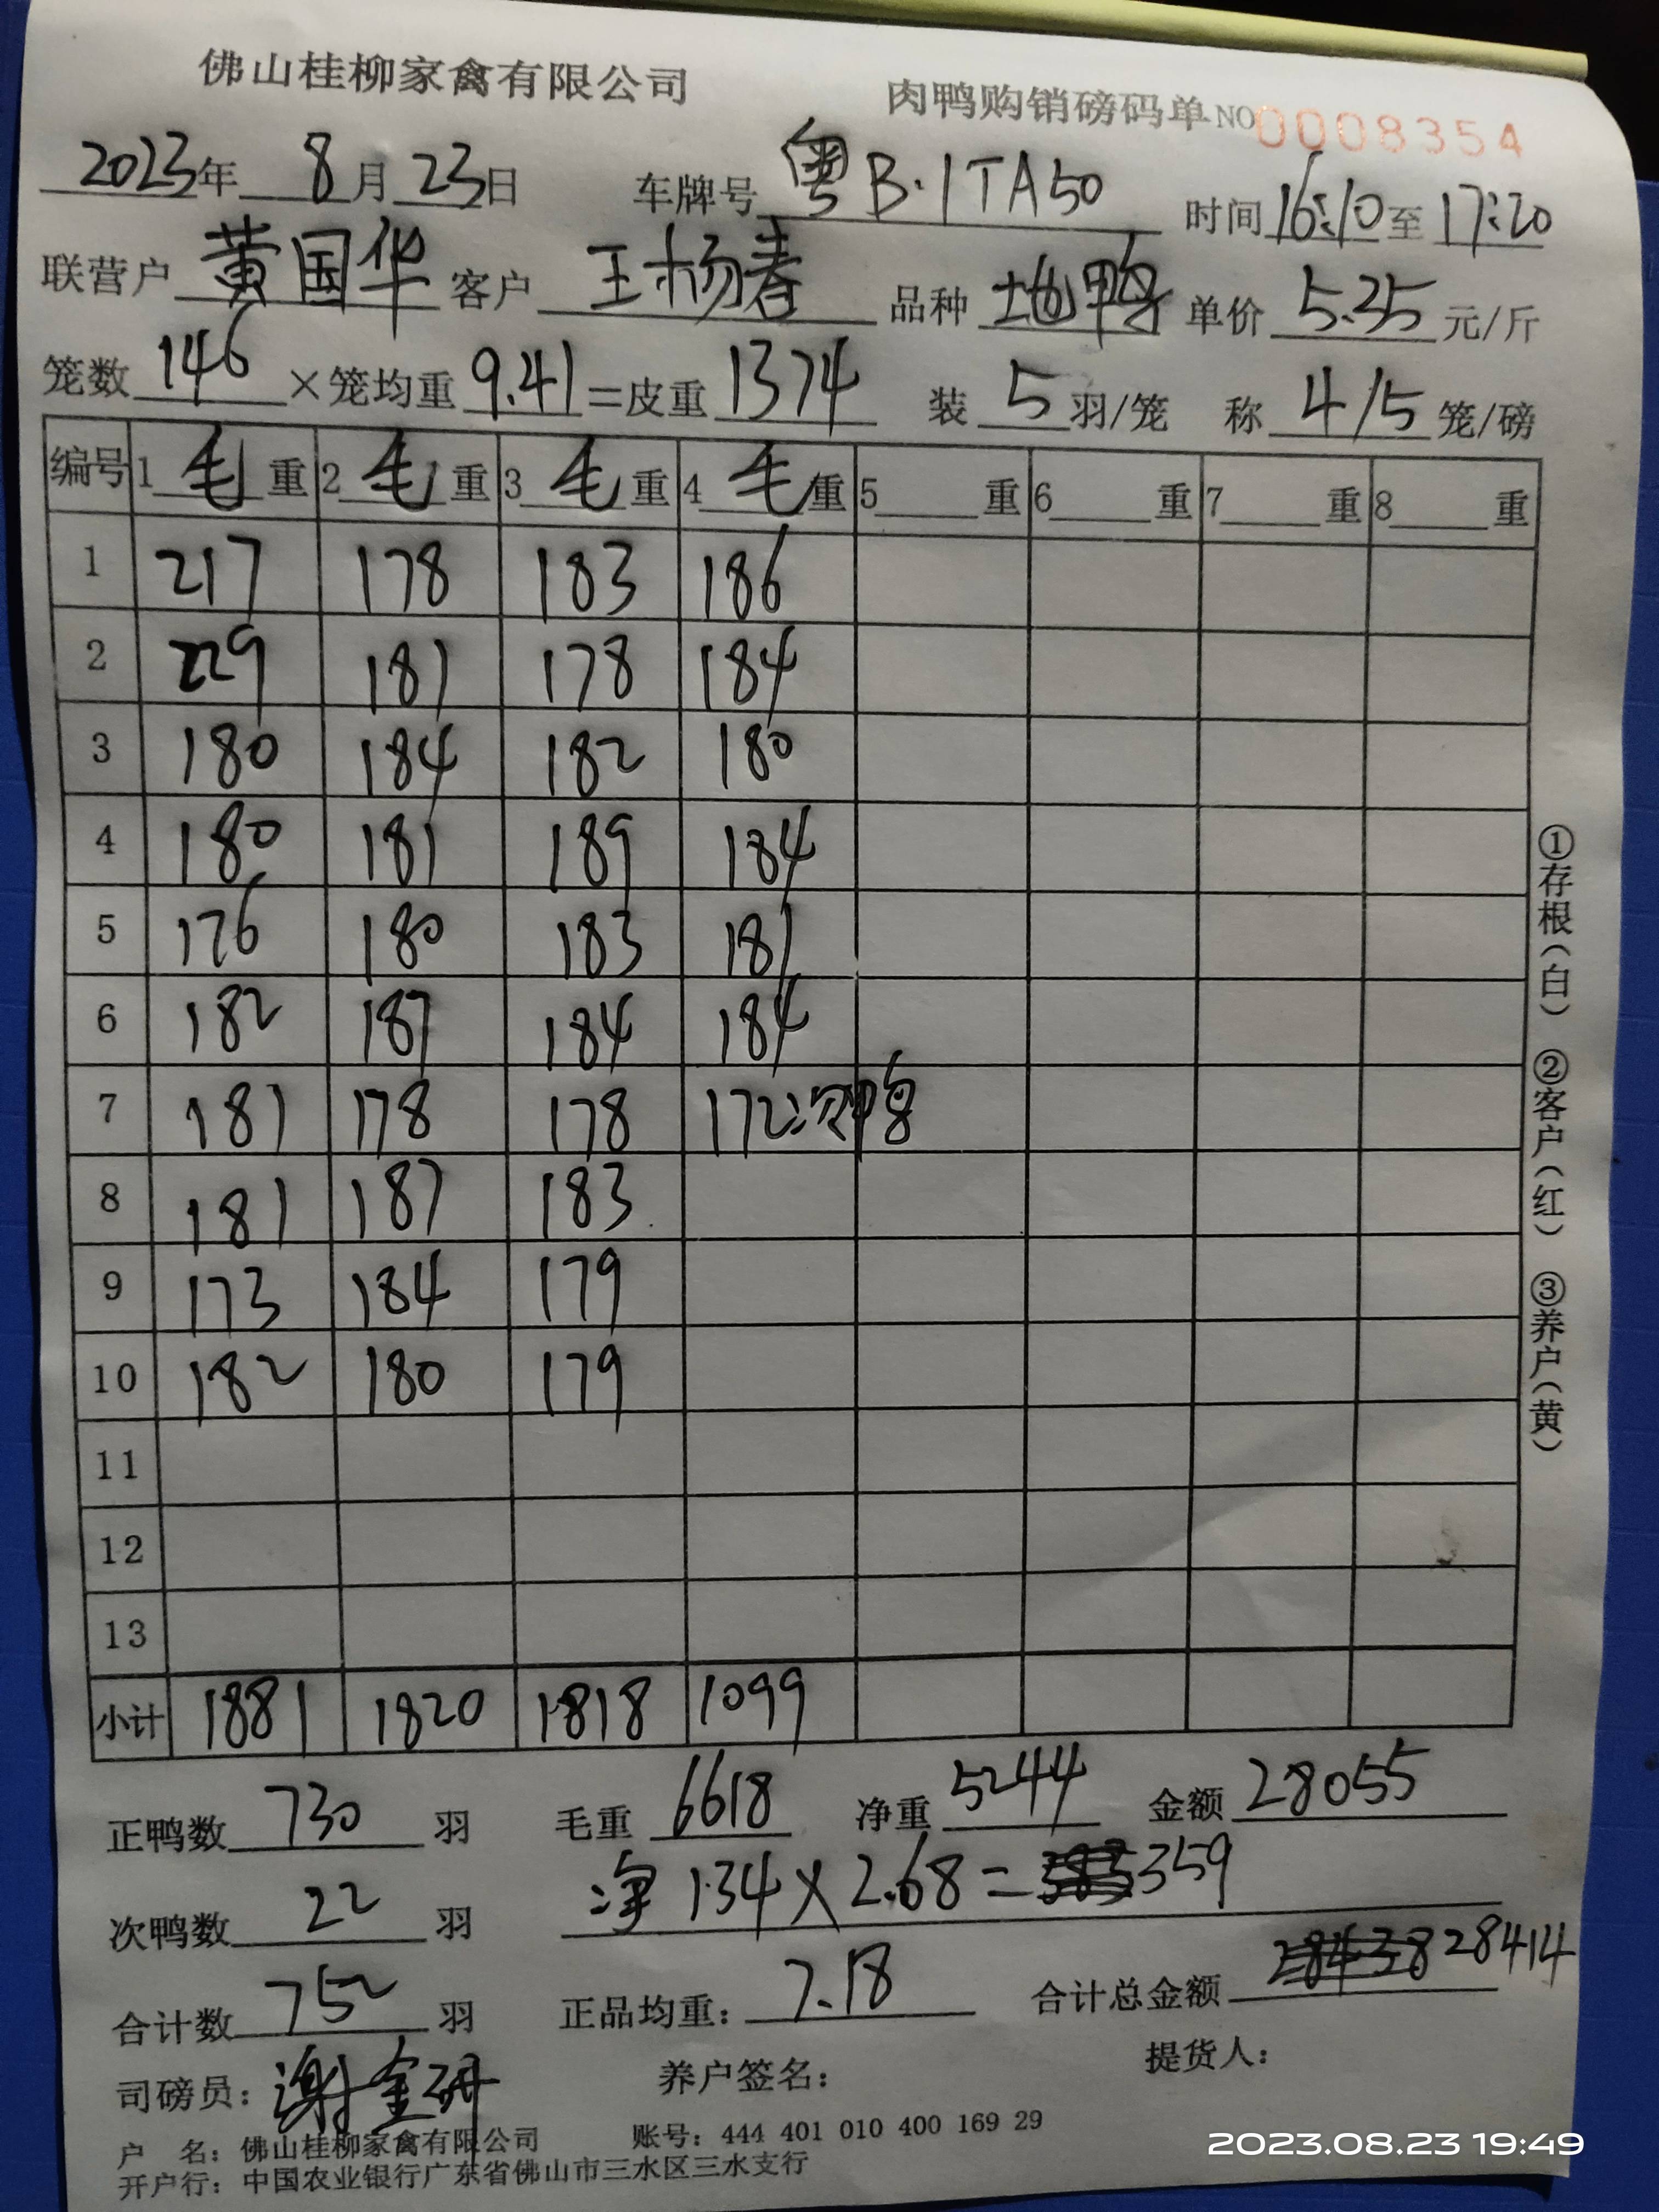 佛山桂柳家禽有限公司 肉鸭购销磅码单 NO 0008354
2023年 8月 23日 车牌号 粤B·1TA50 时间 16:10 至 17:20
联营户 黄国华 客户 王杨春 品种 地鸭 单价 5.35 元/斤
笼数 146 ×笼均重 9.41 =皮重 1374 装 5 羽/笼 称 4/5 笼/磅
编号 1 毛 重 2 毛 重 3 毛 重 4 毛 重 5 重 6 重 7 重 8 重
1 217 178 183 186
2 229 181 178 184
3 180 184 182 180
4 180 181 189 184
5 176 180 183 181
6 182 187 184 184
7 181 178 178 172次鸭
8 181 187 183
9 173 184 179
10 182 180 179
11
12
13
小计 1881 1820 1818 1099
正鸭数 730 羽 毛重 6618 净重 5244 金额 28055
次鸭数 22 羽 净 134×2.68= 359
合计数 752 羽 正品均重: 7.18 合计总金额 28414
司磅员: 谢金研 养户签名: 提货人:
户 名: 佛山桂柳家禽有限公司 账号: 444 401 010 400 169 29
开户行: 中国农业银行广东省佛山市三水区三水支行
①存根(白) ②客户(红) ③养户(黄)
2023.08.23 19:49